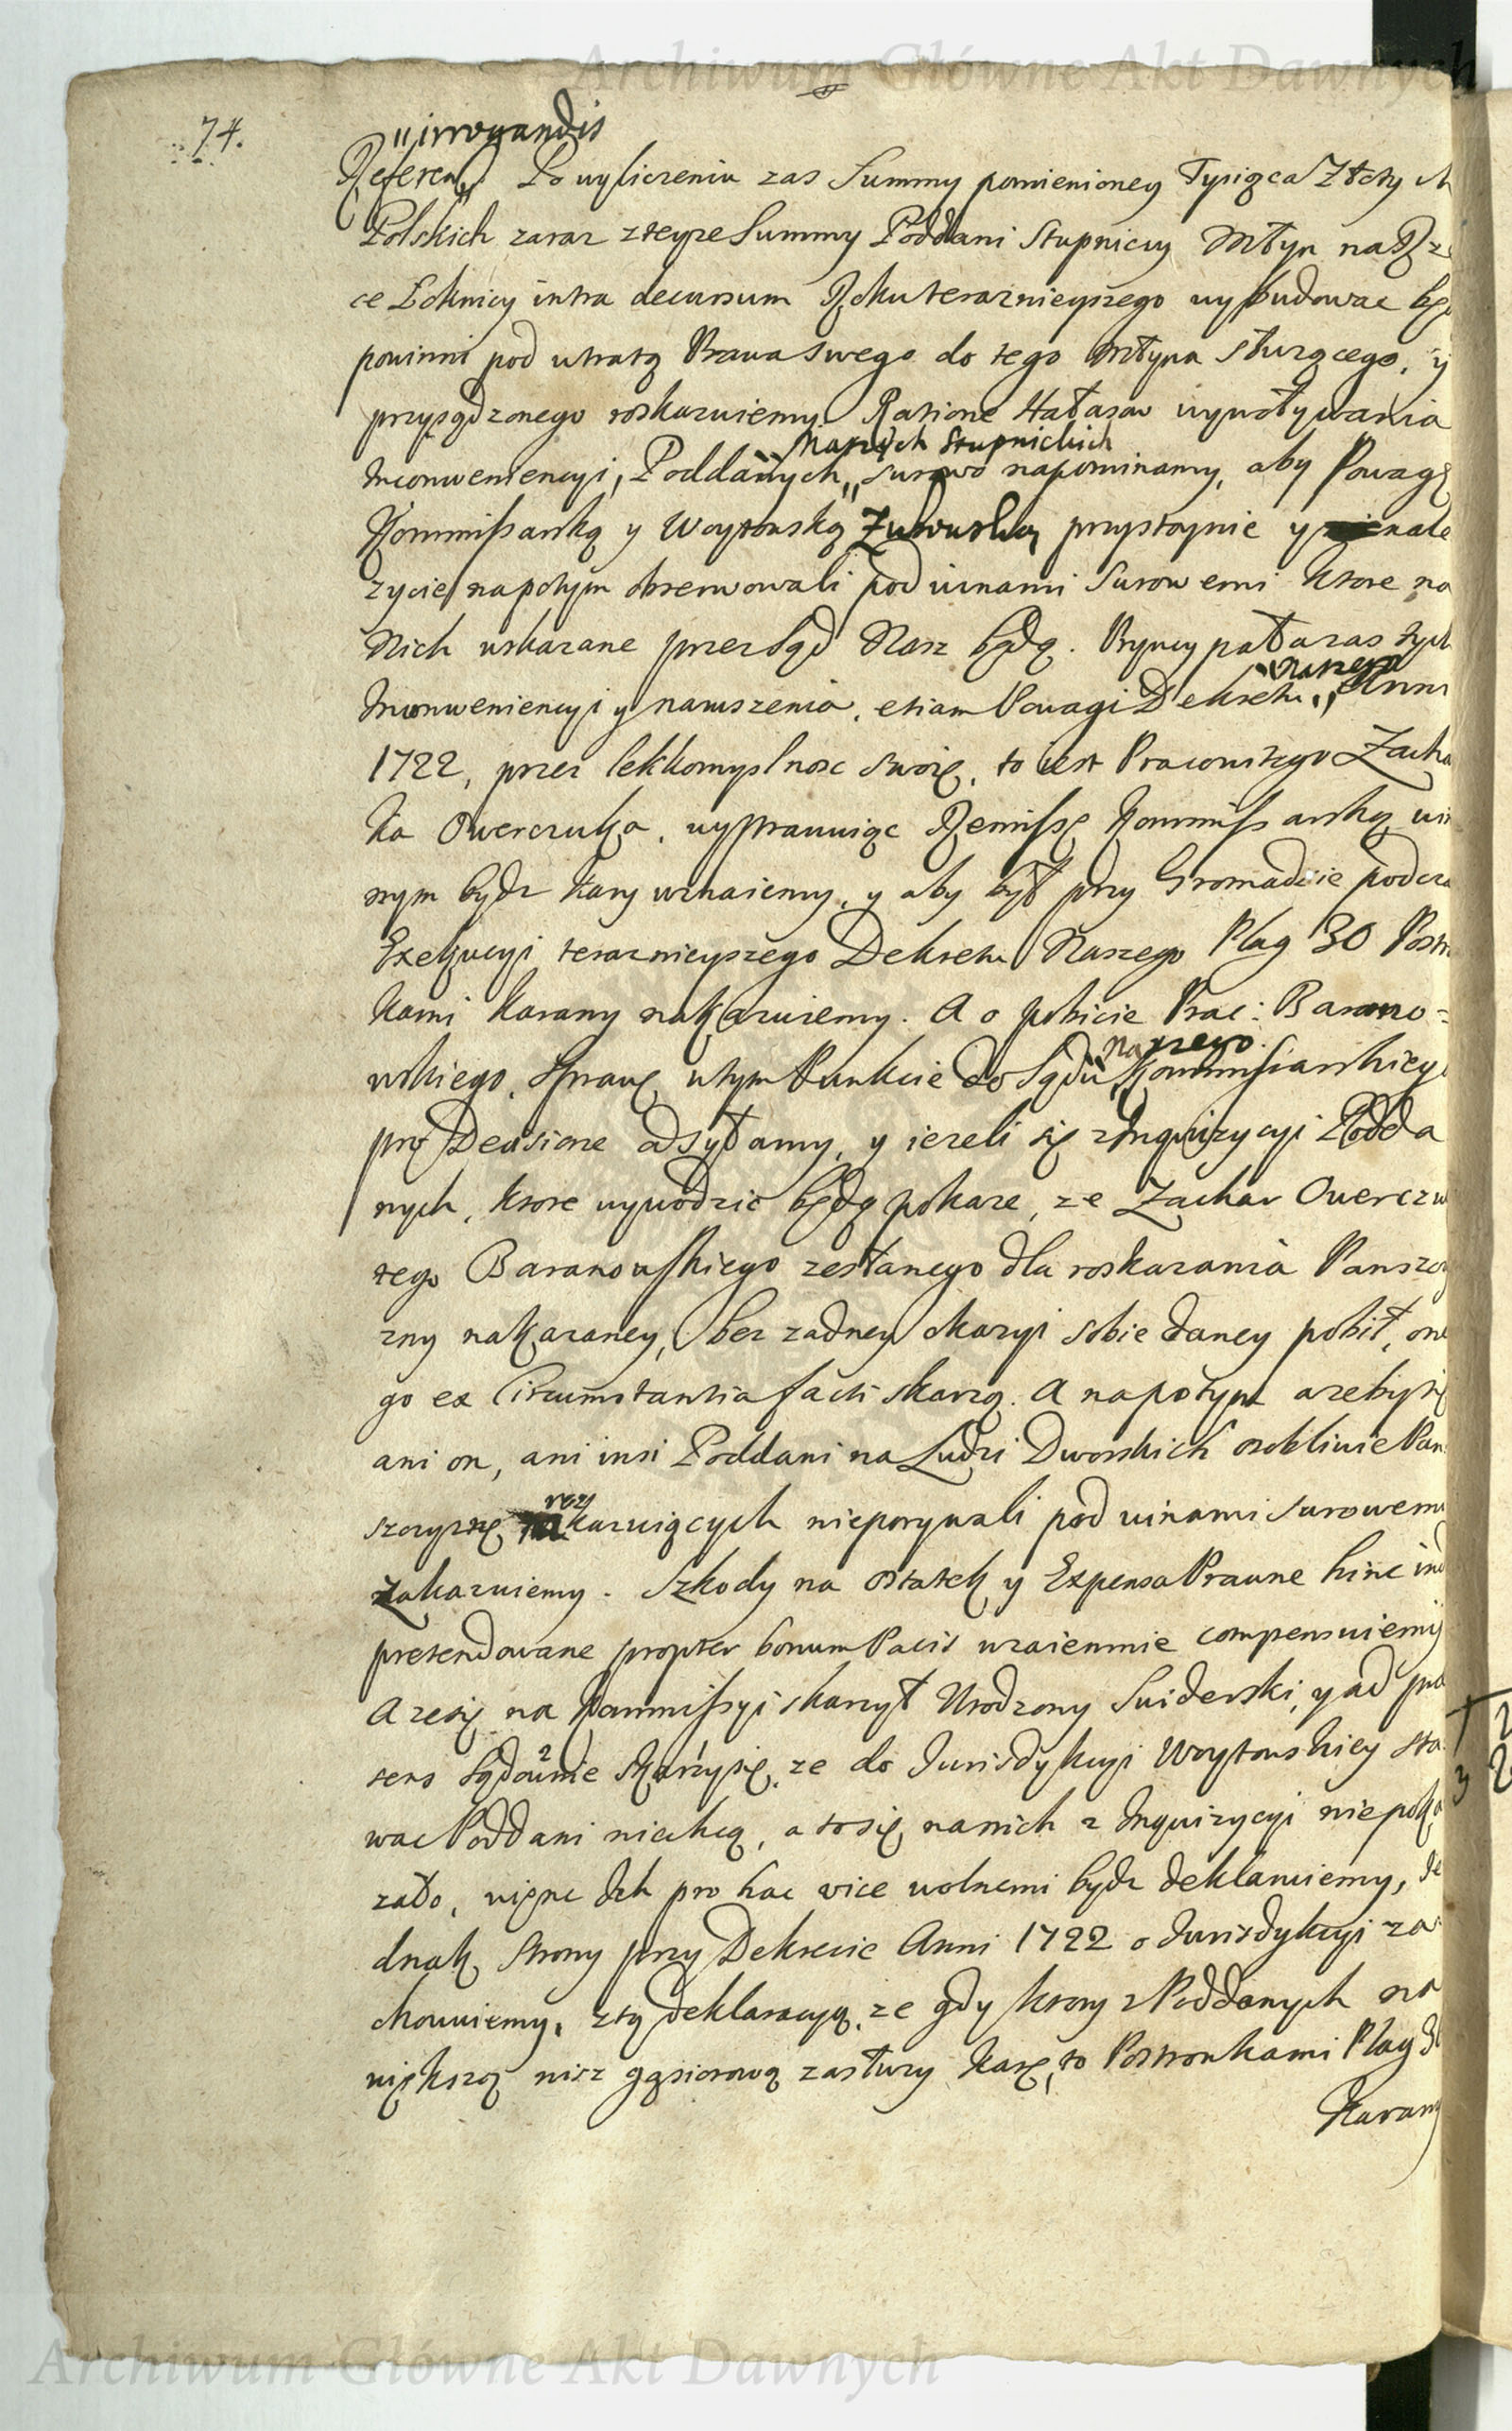 Archiwum Główne Akt Dawnych
74.
"irrogandis
Referen". Po wyliczeniu zas Summy pomienioney Tysiąca Złotych
Polskich zaraz zteyze Summy Poddani Stupniccy Młyn na Rze
ce Łoknicy intra decursum Roku terazniejszego wybudowac będą
powinni pod utratą Prawa Swego do tego Młyna służącego, y
przysądzonego roskazuiemy. Ratione Hałasow wywoływania
Naszych Stupnickich
Inconweniencyi, Poddanych " surowo napominamy, aby Powagę
Kommissarską y Woytowską przystoynie y nale
zycie napotym obserwowali pod winami Surowemi ktore na
Nich wskazane przez Sąd Nasz będą. Pryncypała zas tych
"Naszego
Inconweniencyi y naruszenia, etiam Powagi Dekretu " Anni
1722, przez lekkomyslnosc swoię, to iest Pracowitego Zacha
ka Owerczuka, wyprawuiąc Remissę Kommissarską win
nym bydz kary uznaiemy, y aby był przy Gromadzie podcza
Exekucyi terazniejszego Dekretu Naszego Plag 30 Postro
kami karany nakazuiemy. A o pobicie Prac: Barano=
"Naszego
wskiego, Sprawę wtym Punkcie do Sądu " Kommissarskiego
pro Decisione odsyłamy, y iezeli się z Inquizycyi Podda
nych, ktore wywodzic będą pokaze, ze Zachar Owerczu
tego Baranowskiego zesłanego dla roskazania Panszczy
zny nakazaney, bez zadney okazyi sobie daney pobił, one
go ex Circumstantia facti skarzą. A napotym azeby się
ani on, ani insi Poddani na Ludzi Dworskich osobliwie Pan
roz
szczyznę kazuiących nieporywali pod winami surowemi
zakazuiemy. Szkody na ostatek y Expensa Prawne hinc ind
pretendowane propter bonum Pacis wzaiemnie compensuiemy
A ze się na Kommissyi skarzył Urodzony Swiderski, y ad pra
sens Sądownie Skarży się, ze do Jurisdykcyi Woytowskiey sta
wac Poddani niechcą, a to się na nich z Inquizycyi niepoka
zało, więnc Ich pro hac vice wolnemi bydz deklaruiemy, Je
dnak Strony przy Dekrecie Anni 1722 o Jurisdykcyi za
chowuiemy, ztą deklaracyą, ze gdy ktory z Poddanych na
większą nisz gąsiorową zasłuzy karę, to Postronkami Plag
Karany
Archiwum Główne Akt Dawnych